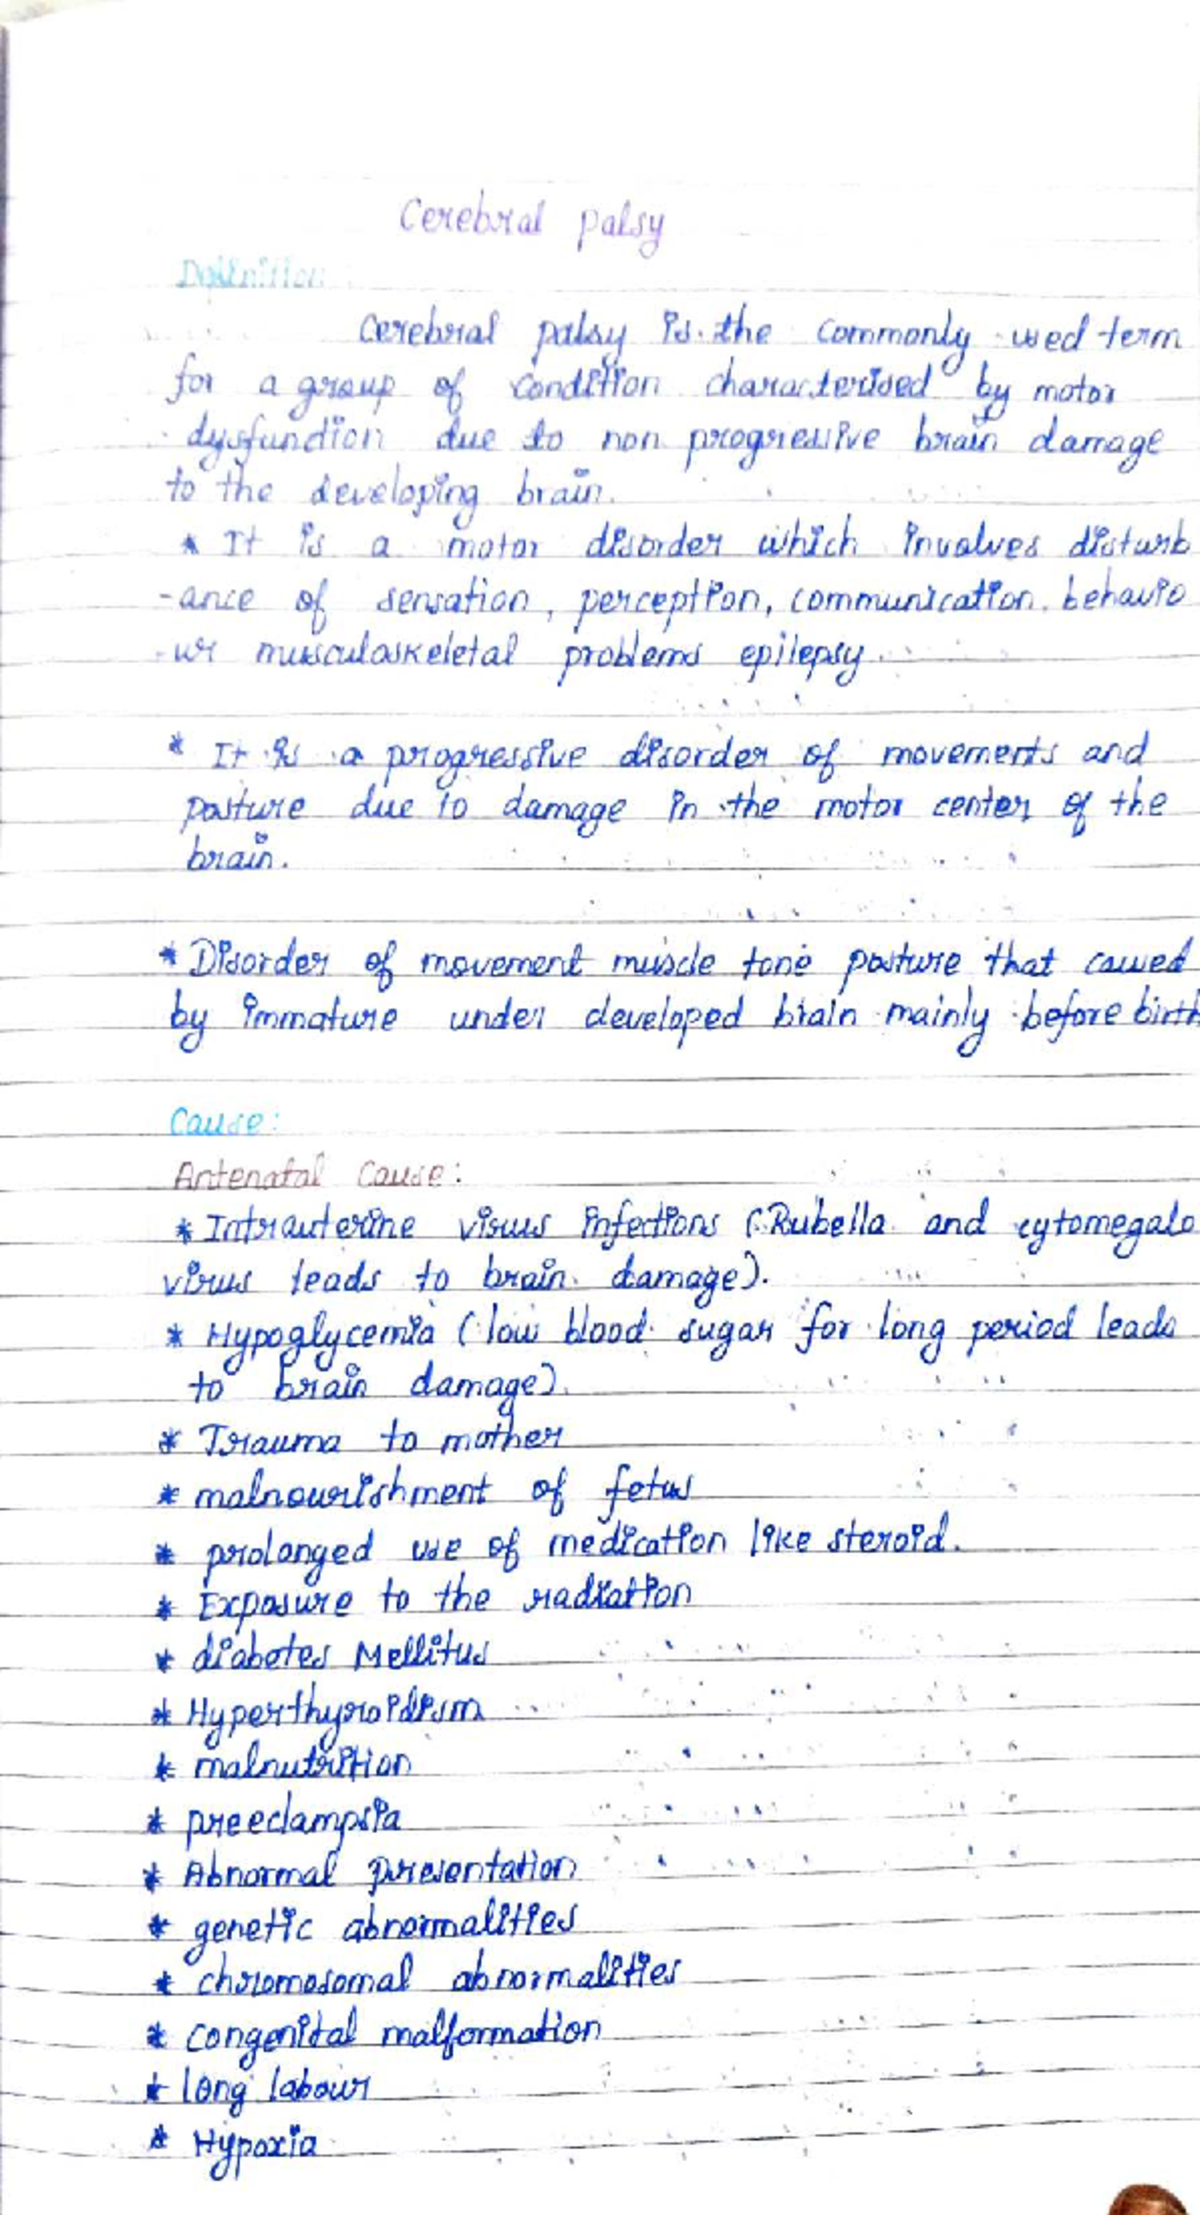 Cerebral palsy
Definition :
Cerebral palsy is the commonly used term
for a group of condition characterised by motor
dysfunction due to non progressive brain damage
to the developing brain.
* It is a motor disorder which involves disturb
-ance of sensation, perception, communication, behavio
-ur musculoskeletal problems epilepsy.
* It is a progressive disorder of movements and
posture due to damage in the motor center of the
brain.
* Disorder of movement muscle tone posture that caused
by immature under developed brain mainly before birth
Cause:
Antenatal Cause:
* Intrauterine virus infections (Rubella and cytomegalo
virus leads to brain damage).
* Hypoglycemia (low blood sugar for long period leads
to brain damage).
* Trauma to mother
* malnourishment of fetus
* prolonged use of medication like steroid.
* Exposure to the radiation
* diabetes Mellitus
* Hyperthyroidism
* malnutrition
* preeclampsia
* Abnormal presentation
* genetic abnormalities
* chromosomal abnormalities
* congenital malformation
* long labour
* Hypoxia